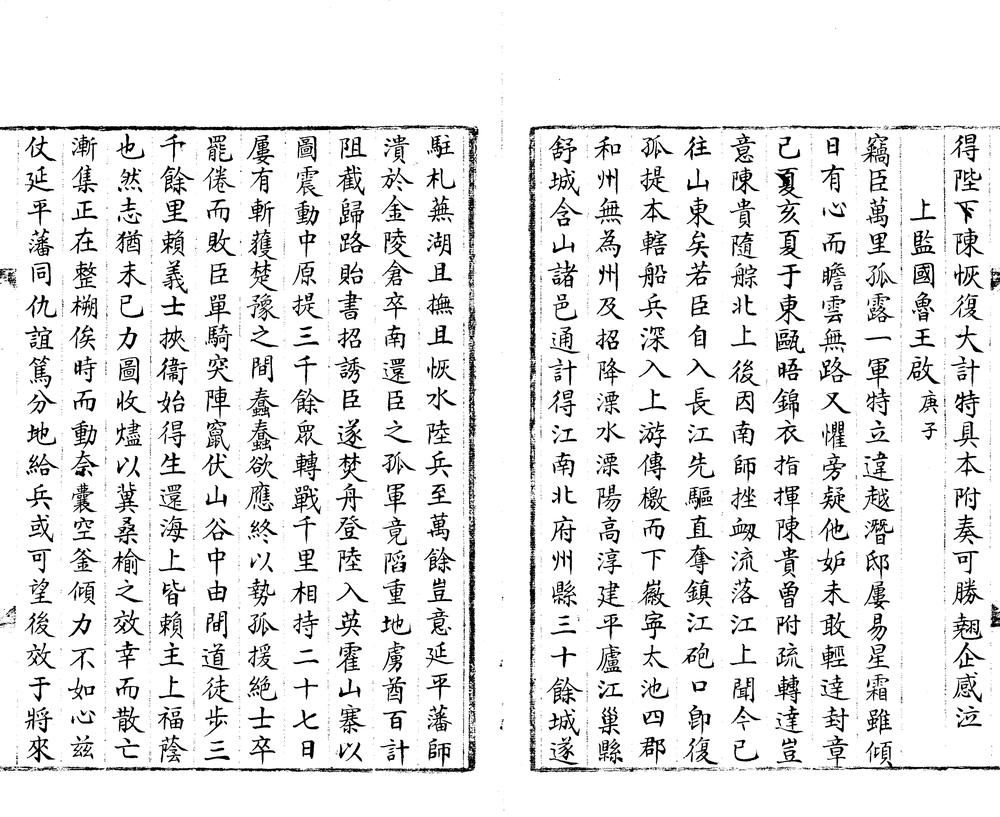 得陛下陳恢復大計特具本附奏可勝翹企感泣
上監國魯王啟庚子
竊臣萬里孤露一軍特立違越潛邸屢易星霜雖傾
日有心而瞻雲無路又懼旁疑他妬未敢輕達封章
己夏亥夏于東甌晤錦衣指揮陳貴曾附疏轉達豈
意陳貴隨䑸北上後因南師挫衂流落江上聞今已
往山東矣若臣自入長江先驅直奪鎮江砲口卽復
孤提本轄船兵深入上游傳檄而下徽寧太池四郡
和州無為州及招降溧水溧陽高淳建平廬江巢縣
舒城含山諸邑通計得江南北府州縣三十餘城遂
駐札蕪湖且撫且恢水陸兵至萬餘豈意延平藩師
潰於金陵倉卒南還臣之孤軍竟陷重地虜酋百計
阻截歸路貽書招誘臣遂焚舟登陸入英霍山寨以
圖震動中原提三千餘眾轉戰千里相持二十七日
屢有斬獲楚豫之間蠢蠢欲應終以勢孤援絕士卒
罷倦而敗臣單騎突陣竄伏山谷中由間道徒步三
千餘里賴義士挾衞始得生還海上皆賴主上福蔭
也然志猶未已力圖收燼以冀桑榆之效幸而散亡
漸集正在整搠俟時而動柰囊空釜傾力不如心兹
仗延平藩同仇誼篤分地給兵或可望後效于將來